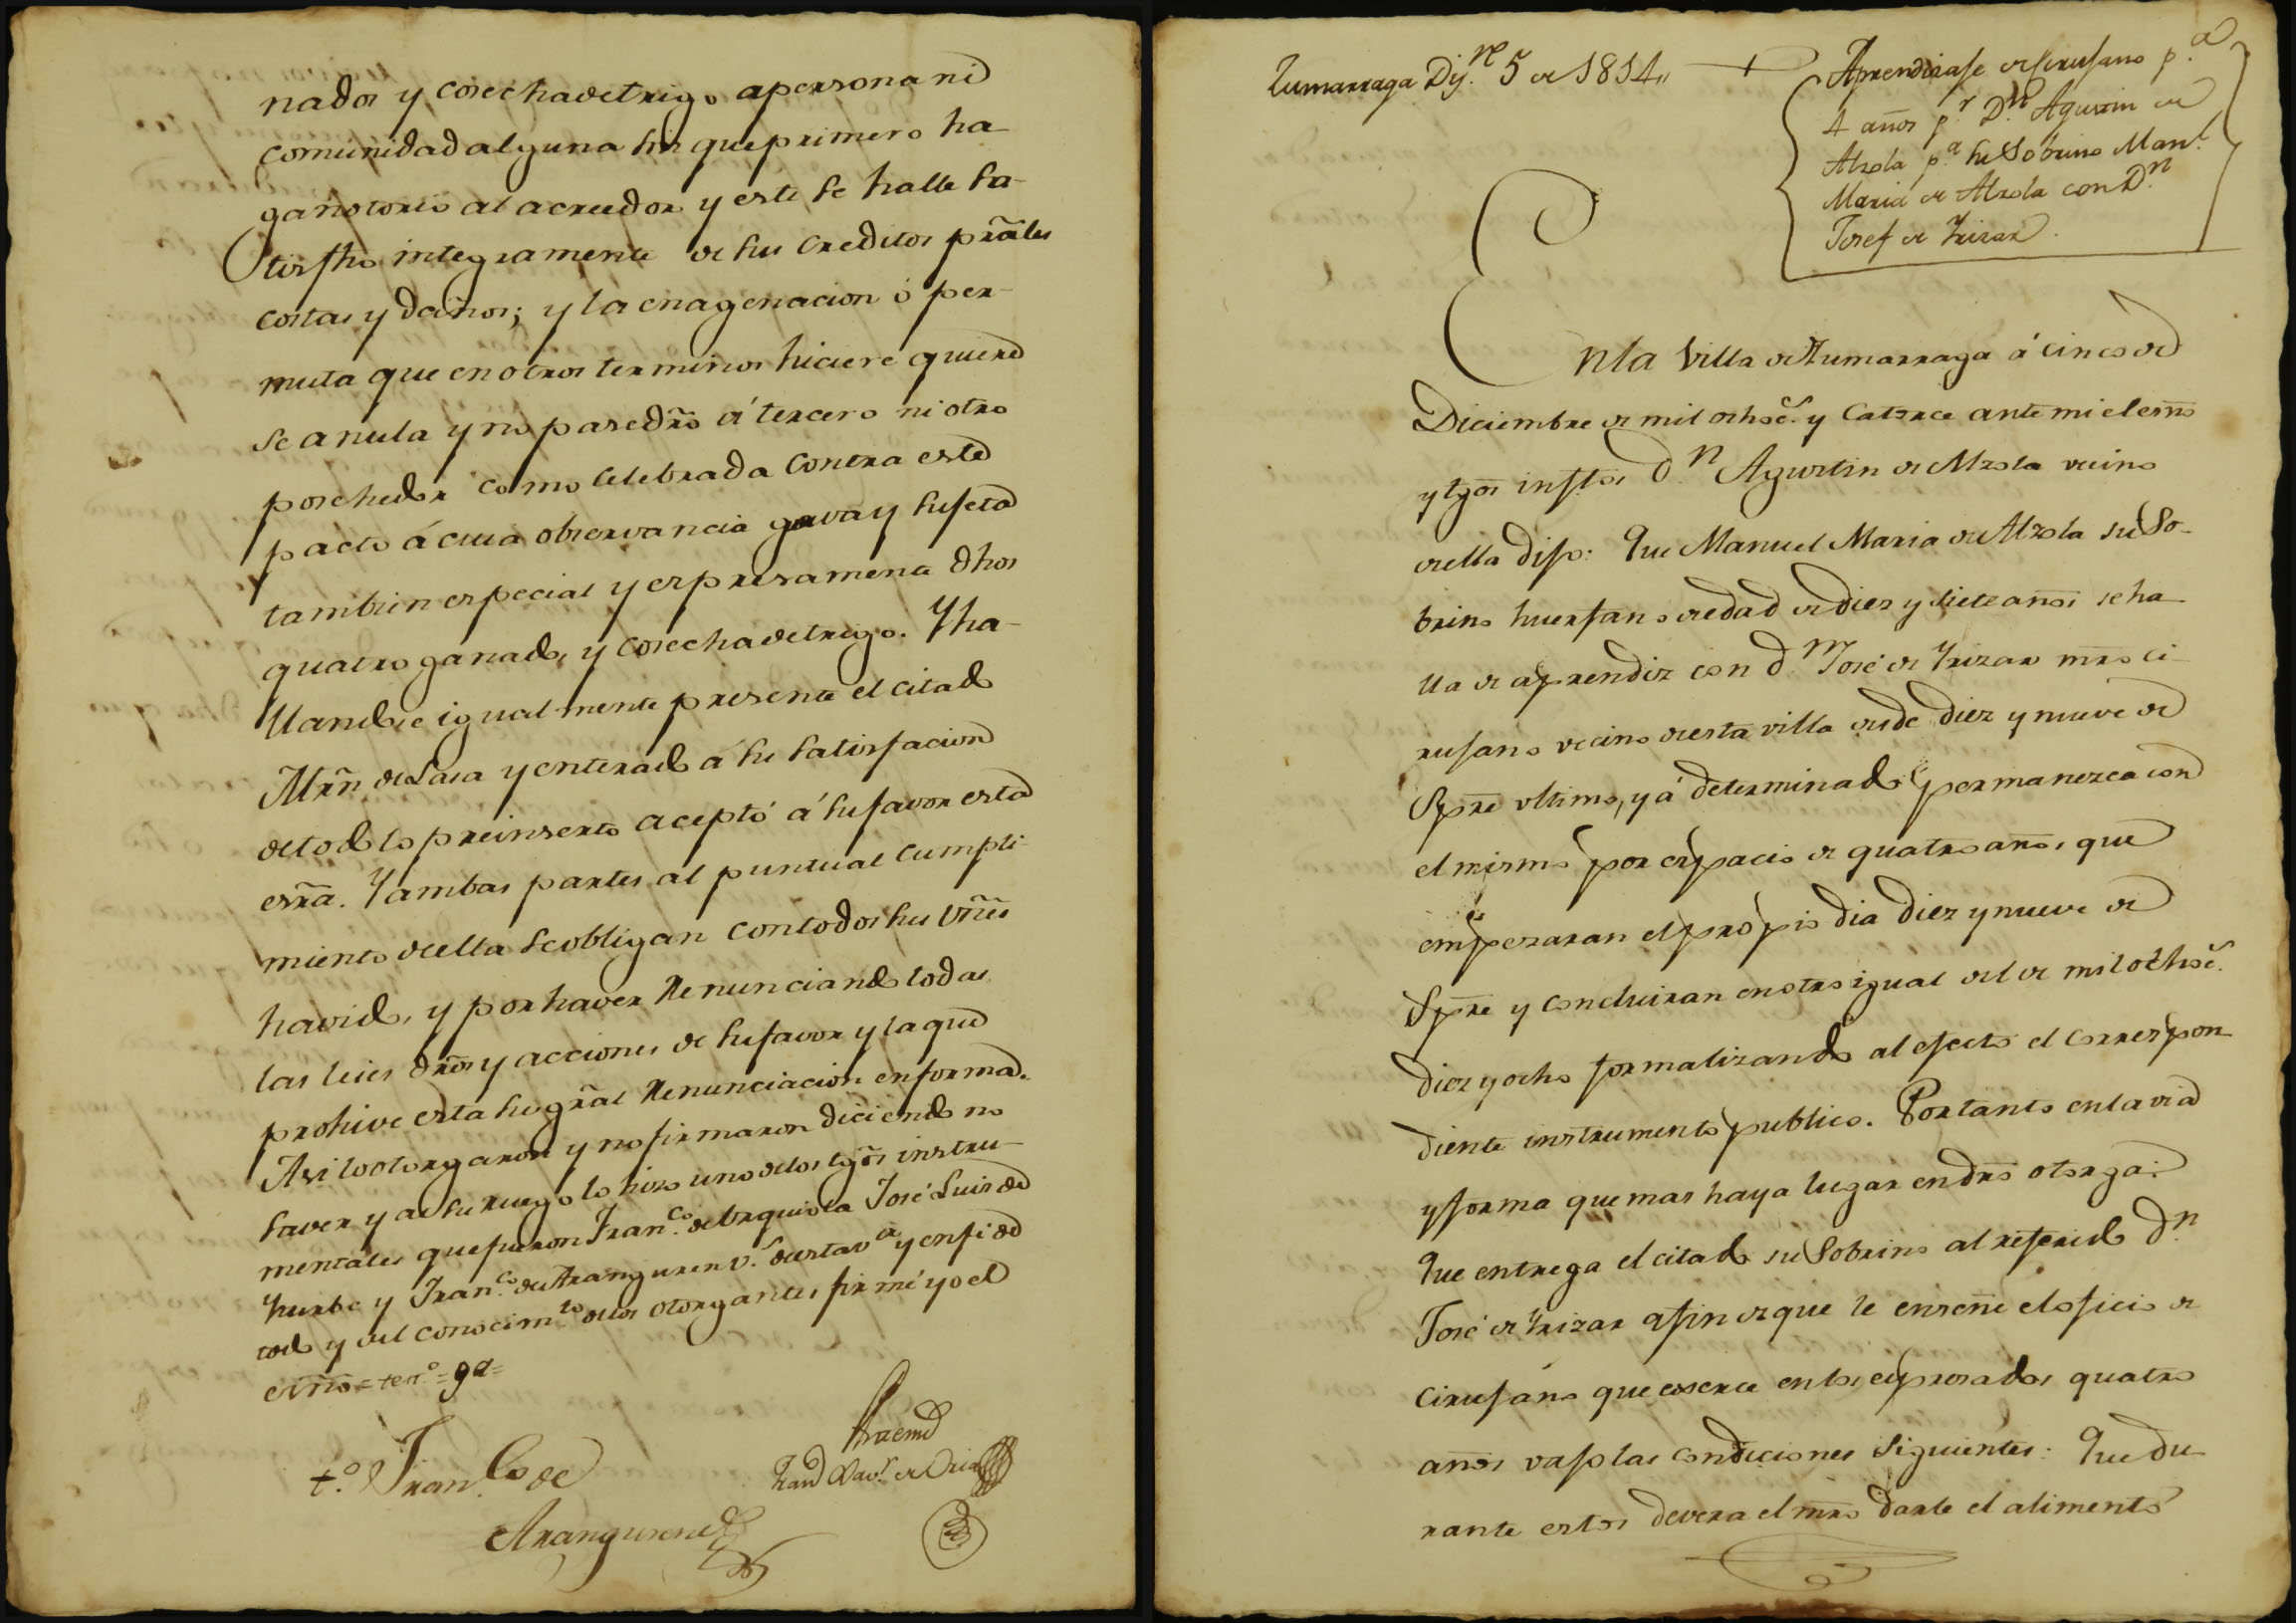 nados y cosecha de trigo a persona ni
comunidad alguna sin que primero ha
ga notorio al acreedor y este se halle sa-
tisfho integramente de sus creditos prãles
costas y daños; y la enagenacion ó per-
muta que en otros terminos hiciere quiere
se anula y no pase drõ á tercero ni otro
posehedor como celebrada contra este
pacto á cuia observancia grava y sujeta
tambien especial y expresamente dhos
quatro ganados, y cosecha de trigo. Y ha-
llandose igualmente presente el citado
Mrñ de Lasa y enterado á su satisfacion
de todo lo preinserto aceptó á su favor esta
esrã. Y ambas partes al puntual cumpli-
miento de ella se obligan con todos sus vñes
havidos, y por haver renunciando todas
las leies drõs y acciones de su favor y la que
prohive esta su grãl renunciacion en forma.
Asi lo otorgaron y no firmaron diciendo no
saver y a su ruego lo hizo uno de los tgõs instru-
mentales que fueron Fran.co de Urquiola José Luis de
Yturbe y Fran.co de Aranguren v.s de esta v.a y en fe de
todo y del conocim.to de los otorgantes firmé yo el
esnõ = ten.o = ga =
t.o Fran.co de
Aranguren
Ante mi
Juan Xav.r de Oria
Zumarraga Dij.re 5 de 1814,,
Aprendizase de cirujano p.a
4 años p.r D.n Agustin de
Alzola p.a su Sobrino Man.l
Maria de Alzola con D.n
Josef de Yrizar.
En la Villa de Zumarraga á cinco de
Diciembre de mil ochoc.s y Catorce ante mi el esnõ
y tgõs insftos d.n Agustin de Alzola vecino
de ella dijo: Que Manuel Maria de Alzola su So-
brino huerfano de edad de diez y siete años se ha
lla de aprendiz con d.n José de Yrizar mrõ ci-
rujano vecino de esta villa desde diez y nueve de
Spre ultimo, y á determinado permanezca con
el mismo por espacio de quatro años, que
empezaran el propio dia diez y nueve de
Spre y concluiran en otro igual del de mil ochoc.s
diez y ocho formalizando al efecto el correspon
diente instrumento publico. Portanto en la via
y forma que mas haya lugar en drõ otorga:
Que entrega el citado su Sobrino al referido d.n
José de Yrizar afin de que le enseñe el oficio de
Cirujano que exerce en los expresados quatro
años vajo las condiciones siguientes: Que du
rante estos devera el mrõ darle el alimento